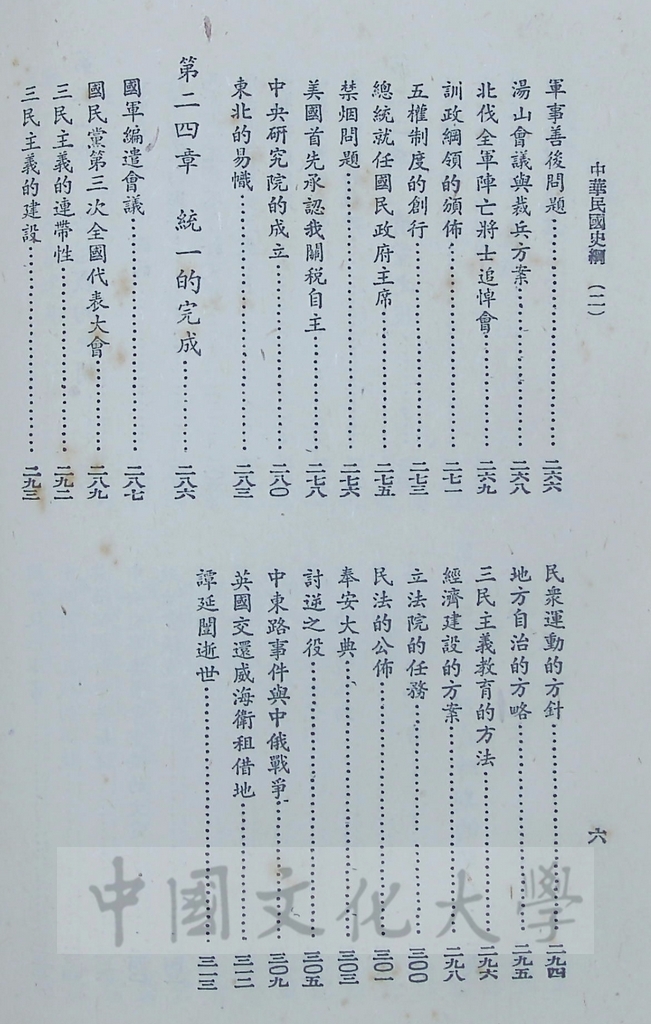 中華民國史綱（二）
六
軍事善後問題……二六六
湯山會議與裁兵方案……二六八
北伐全軍陣亡將士追悼會……二六九
訓政綱領的頒佈……二七一
五權制度的創行……二七三
總統就任國民政府主席……二七五
禁烟問題……二七六
美國首先承認我關稅自主……二七八
中央研究院的成立……二八〇
東北的易幟……二八三
第二四章　統一的完成……二八六
國軍編遣會議……二八七
國民黨第三次全國代表大會……二八九
三民主義的連帶性……二九二
三民主義的建設……二九三
民衆運動的方針……二九四
地方自治的方略……二九五
三民主義教育的方法……二九六
經濟建設的方案……二九八
立法院的任務……三〇〇
民法的公佈……三〇一
奉安大典……三〇三
討逆之役……三〇五
中東路事件與中俄戰爭……三〇九
英國交還威海衛租借地……三一二
譚延闓逝世……三一三
中國文化大學